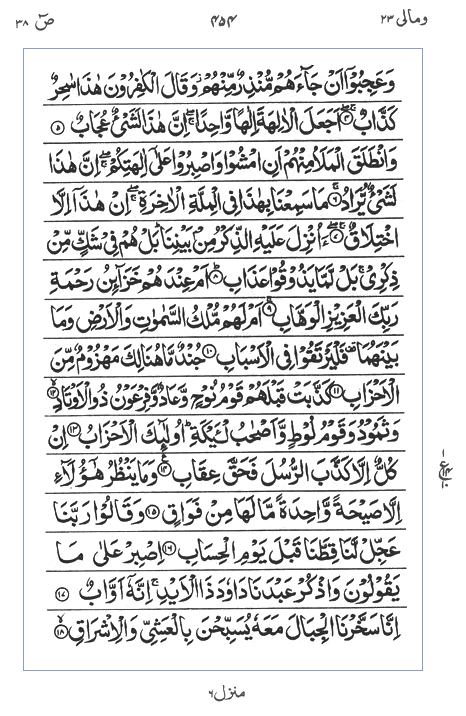 ومالی ٢٣ ٤٥٤ صٓ ٣٨
وَعَجِبُوْۤا اَنْ جَآءَهُمْ مُّنْذِرٌ مِّنْهُمْ وَقَالَ الْكٰفِرُوْنَ هٰذَا سٰحِرٌ
كَذَّابٌ ۖۚ ٤ اَجَعَلَ الْاٰلِهَةَ اِلٰهًا وَّاحِدًا ۖۚ اِنَّ هٰذَا لَشَىْءٌ عُجَابٌ ٥
وَانْطَلَقَ الْمَلَاُ مِنْهُمْ اَنِ امْشُوْا وَاصْبِرُوْا عَلٰۤى اٰلِهَتِكُمْ ۖۚ اِنَّ هٰذَا
لَشَىْءٌ يُّرَادُ ۖۚ ٦ مَا سَمِعْنَا بِهٰذَا فِى الْمِلَّةِ الْاٰخِرَةِ ۖۚ اِنْ هٰذَاۤ اِلَّا
اخْتِلَاقٌ ۖۚ ٧ ءَاُنْزِلَ عَلَيْهِ الذِّكْرُ مِنْۢ بَيْنِنَا ؕ بَلْ هُمْ فِىْ شَكٍّ مِّنْ
ذِكْرِىْ ۚ بَلْ لَّمَّا يَذُوْقُوْا عَذَابِ ؕ ٨ اَمْ عِنْدَهُمْ خَزَآئِنُ رَحْمَةِ
رَبِّكَ الْعَزِيْزِ الْوَهَّابِ ۚ ٩ اَمْ لَهُمْ مُّلْكُ السَّمٰوٰتِ وَالْاَرْضِ وَمَا
بَيْنَهُمَا فَلْيَرْتَقُوْا فِى الْاَسْبَابِ ١٠ جُنْدٌ مَّا هُنَالِكَ مَهْزُوْمٌ مِّنَ
الْاَحْزَابِ ١١ كَذَّبَتْ قَبْلَهُمْ قَوْمُ نُوْحٍ وَّعَادٌ وَّفِرْعَوْنُ ذُو الْاَوْتَادِ ۙ ١٢
وَثَمُوْدُ وَقَوْمُ لُوْطٍ وَّاَصْحٰبُ لْئَيْكَةِ ؕ اُولٰٓئِكَ الْاَحْزَابُ ١٣ اِنْ
كُلٌّ اِلَّا كَذَّبَ الرُّسُلَ فَحَقَّ عِقَابِ ١٤ وَمَا يَنْظُرُ هٰۤؤُلَآءِ
اِلَّا صَيْحَةً وَّاحِدَةً مَّا لَهَا مِنْ فَوَاقٍ ١٥ وَقَالُوْا رَبَّنَا
عَجِّلْ لَّنَا قِطَّنَا قَبْلَ يَوْمِ الْحِسَابِ ١٦ اِصْبِرْ عَلٰى مَا
يَقُوْلُوْنَ وَاذْكُرْ عَبْدَنَا دَاوٗدَ ذَا الْاَيْدِ ۚ اِنَّهٗۤ اَوَّابٌ ١٧
اِنَّا سَخَّرْنَا الْجِبَالَ مَعَهٗ يُسَبِّحْنَ بِالْعَشِىِّ وَالْاِشْرَاقِ ۙ ١٨
منزل ٦